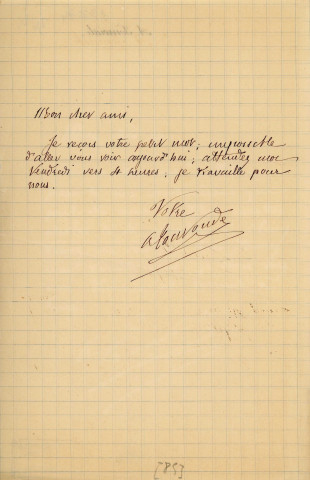 Mon cher ami,
Je reçois votre petit mot; impossible
d'aller vous voir aujourd'hui; attendez moi
Vendredi vers 4 heures; je travaille pour
nous.
Votre
[58]